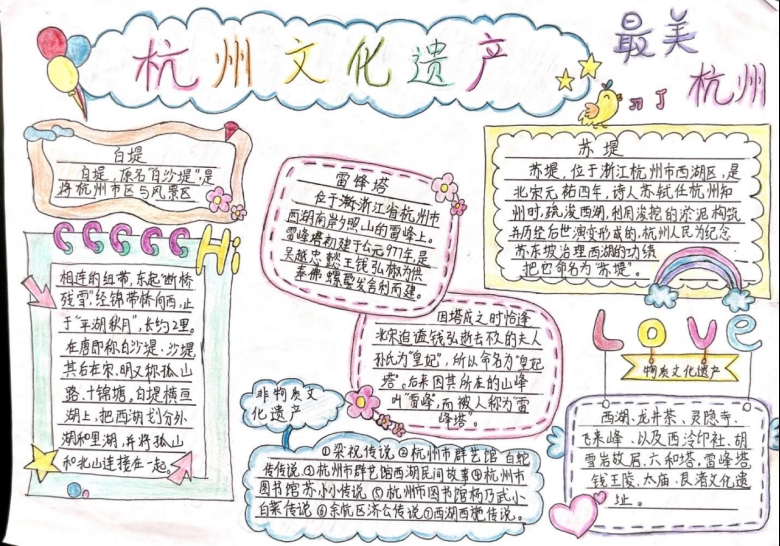 杭州文化遗产
最美
杭州
白堤
白堤,原名"白沙堤",是
将杭州市区与风景区
Hi
相连的纽带,东起"断桥
残雪",经锦带桥向西,止
于"平湖秋月",长约2里。
在唐即称白沙堤、沙堤,
其后在宋、明又称孤山
路、十锦塘,白堤横亘
湖上,把西湖划分外
湖和里湖,并将孤山
和北山连接在一起。
雷锋塔
位于浙江省杭州市
西湖南岸夕照山的雷峰上。
雷峰塔初建于公元977年,是
吴越忠懿王钱弘俶为供
奉佛螺髻发舍利而建。
因塔成之时恰逢
北宋追谥钱弘逝去不久的夫人
孙氏为"皇妃",所以命名为"皇妃
塔"。后来因其所在的山峰
叫"雷峰",而被人称为"雷
峰塔"。
苏堤
苏堤,位于浙江杭州市西湖区,是
北宋元祐四年,诗人苏轼任杭州知
州时,疏浚西湖,利用浚挖的淤泥构筑
并历经后世演变形成的,杭州人民为纪念
苏东坡治理西湖的功绩
把它命名为"苏堤"。
LOVE
物质文化遗产
西湖、龙井茶、灵隐寺、
飞来峰、以及西泠印社、胡
雪岩故居、六和塔、雷峰塔、
钱王陵、太庙、良渚文化遗
址。
非物质文
化遗产
①梁祝传说②杭州市群艺馆 白蛇
传传说③杭州市群艺馆西湖民间故事④杭州市
图书馆苏小小传说⑤杭州市图书馆杨乃武小
白菜传说⑥余杭区济公传说⑦西湖西施传说。